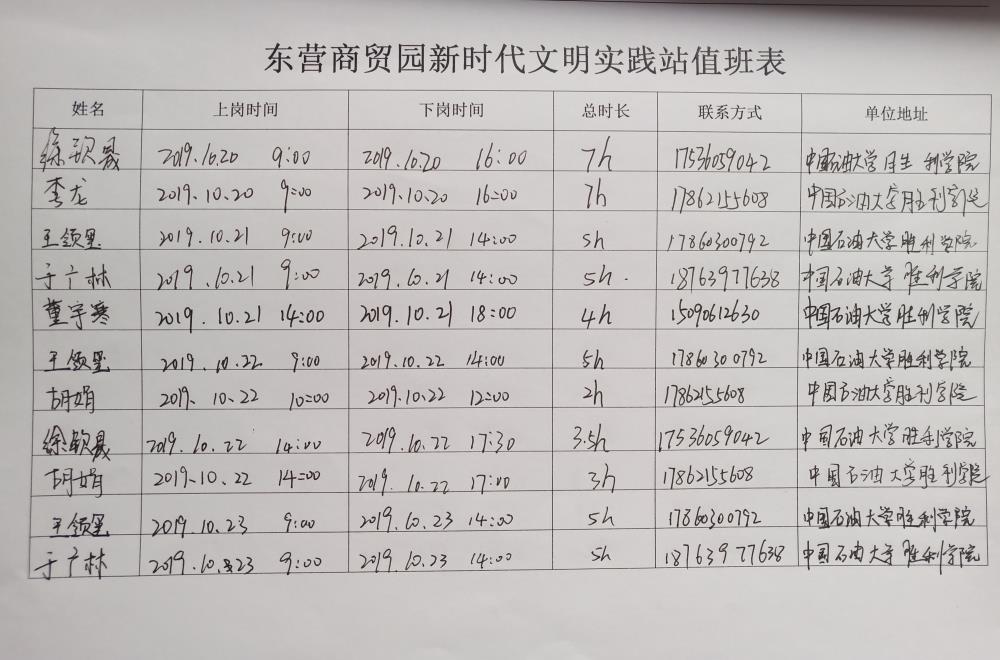 东营商贸园新时代文明实践站值班表
姓名 上岗时间 下岗时间 总时长 联系方式 单位地址
徐歆晟 2019.10.20 9:00 2019.10.20 16:00 7h 17536059042 中国石油大学胜利学院
李龙 2019.10.20 9:00 2019.10.20 16:00 7h 17862155608 中国石油大学胜利学院
王领 2019.10.21 9:00 2019.10.21 14:00 5h 17860300792 中国石油大学胜利学院
于广林 2019.10.21 9:00 2019.10.21 14:00 5h. 18763977638 中国石油大学胜利学院
董宇寒 2019.10.21 14:00 2019.10.21 18:00 4h 15090612630 中国石油大学胜利学院
王领 2019.10.22 9:00 2019.10.22 14:00 5h 17860300792 中国石油大学胜利学院
胡娟 2019.10.22 10:00 2019.10.22 12:00 2h 17862155608 中国石油大学胜利学院
徐歆晟 2019.10.22 14:00 2019.10.22 17:30 3.5h 17536059042 中国石油大学胜利学院
胡娟 2019.10.22 14:00 2019.10.22 17:00 3h 17862155608 中国石油大学胜利学院
王领 2019.10.23 9:00 2019.10.23 14:00 5h 17860300792 中国石油大学胜利学院
于广林 2019.10.23 9:00 2019.10.23 14:00 5h 18763977638 中国石油大学胜利学院